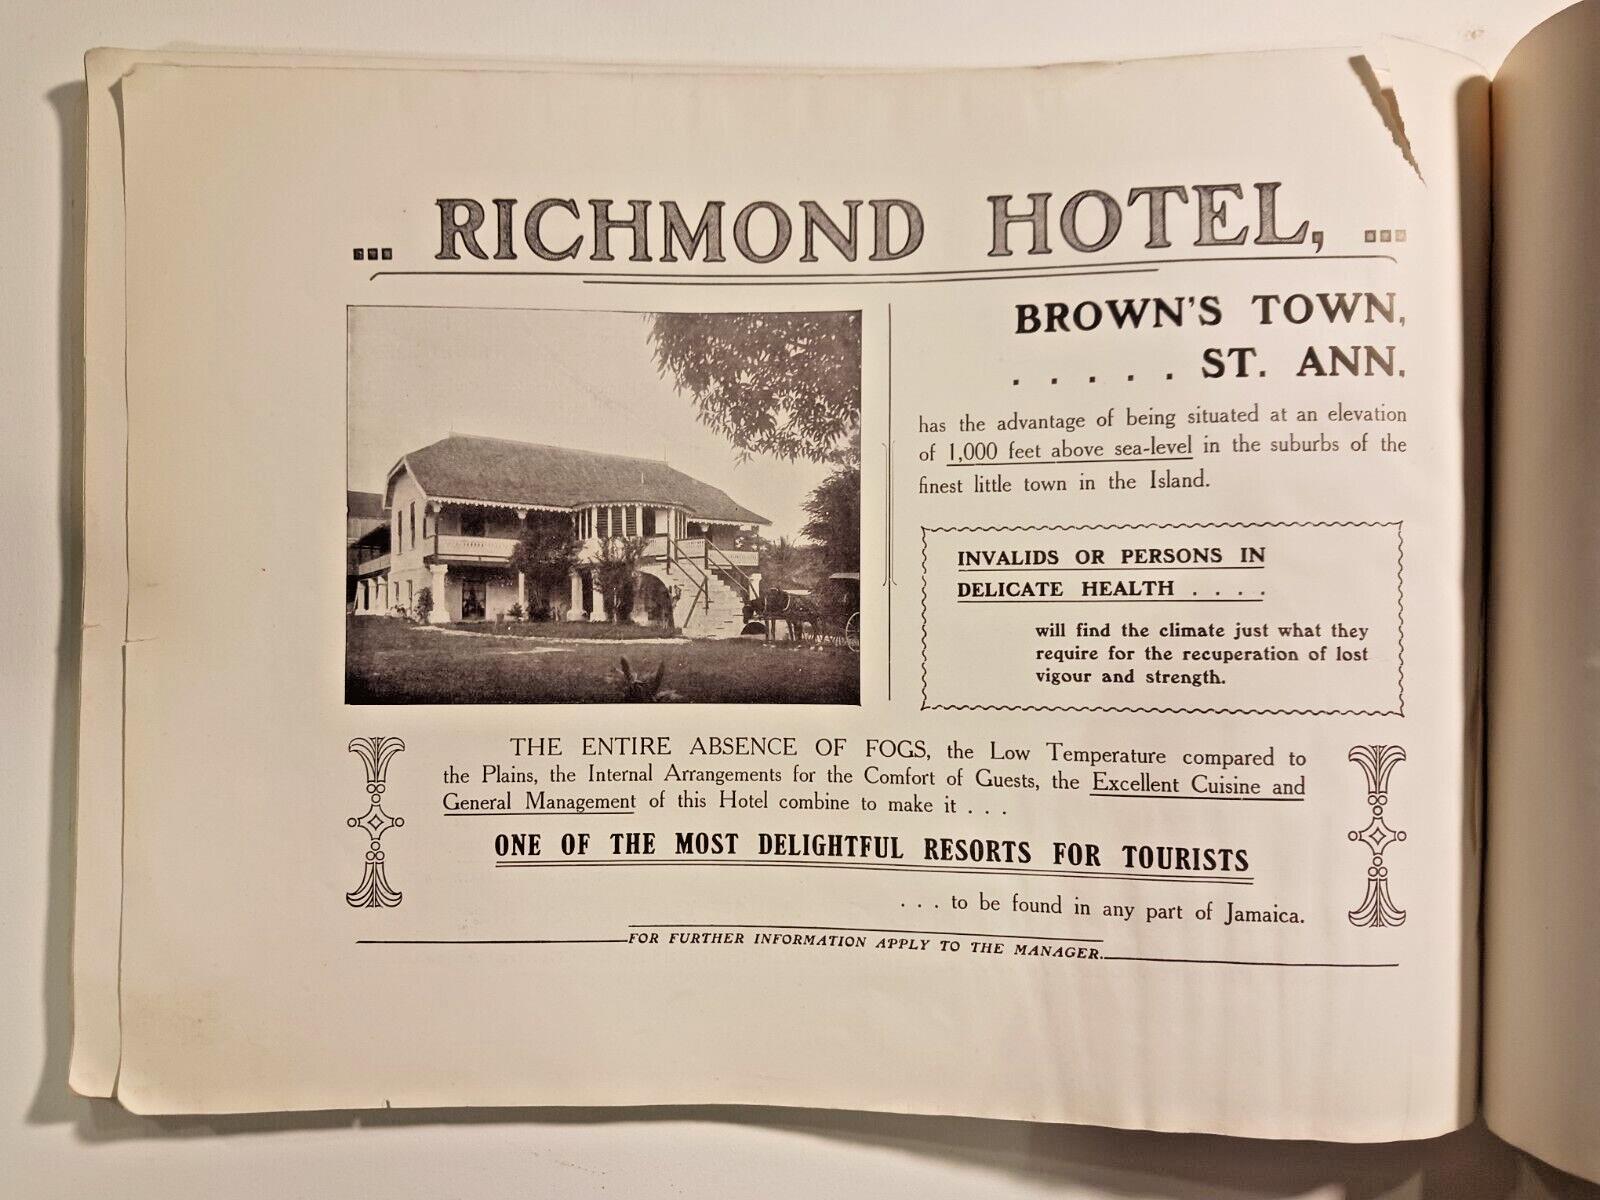 ... RICHMOND HOTEL, ...
BROWN'S TOWN,
. . . . . ST. ANN.
has the advantage of being situated at an elevation
of 1,000 feet above sea-level in the suburbs of the
finest little town in the Island.
INVALIDS OR PERSONS IN
DELICATE HEALTH . . . .
will find the climate just what they
require for the recuperation of lost
vigour and strength.
THE ENTIRE ABSENCE OF FOGS, the Low Temperature compared to
the Plains, the Internal Arrangements for the Comfort of Guests, the Excellent Cuisine and
General Management of this Hotel combine to make it . . .
ONE OF THE MOST DELIGHTFUL RESORTS FOR TOURISTS
. . . to be found in any part of Jamaica.
FOR FURTHER INFORMATION APPLY TO THE MANAGER.